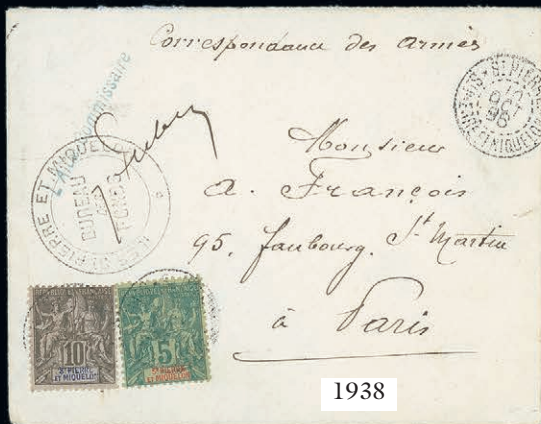 Correspondance des Armées
L'Aide-Commissaire
ILES ST PIERRE ET MIQUELON
BUREAU
DES
FONDS
ST PIERRE
OCT
96
Monsieur
A. François
95, faubourg St Martin
à Paris
10
ST PIERRE
ET MIQUELON
5
ST PIERRE
ET MIQUELON
1938